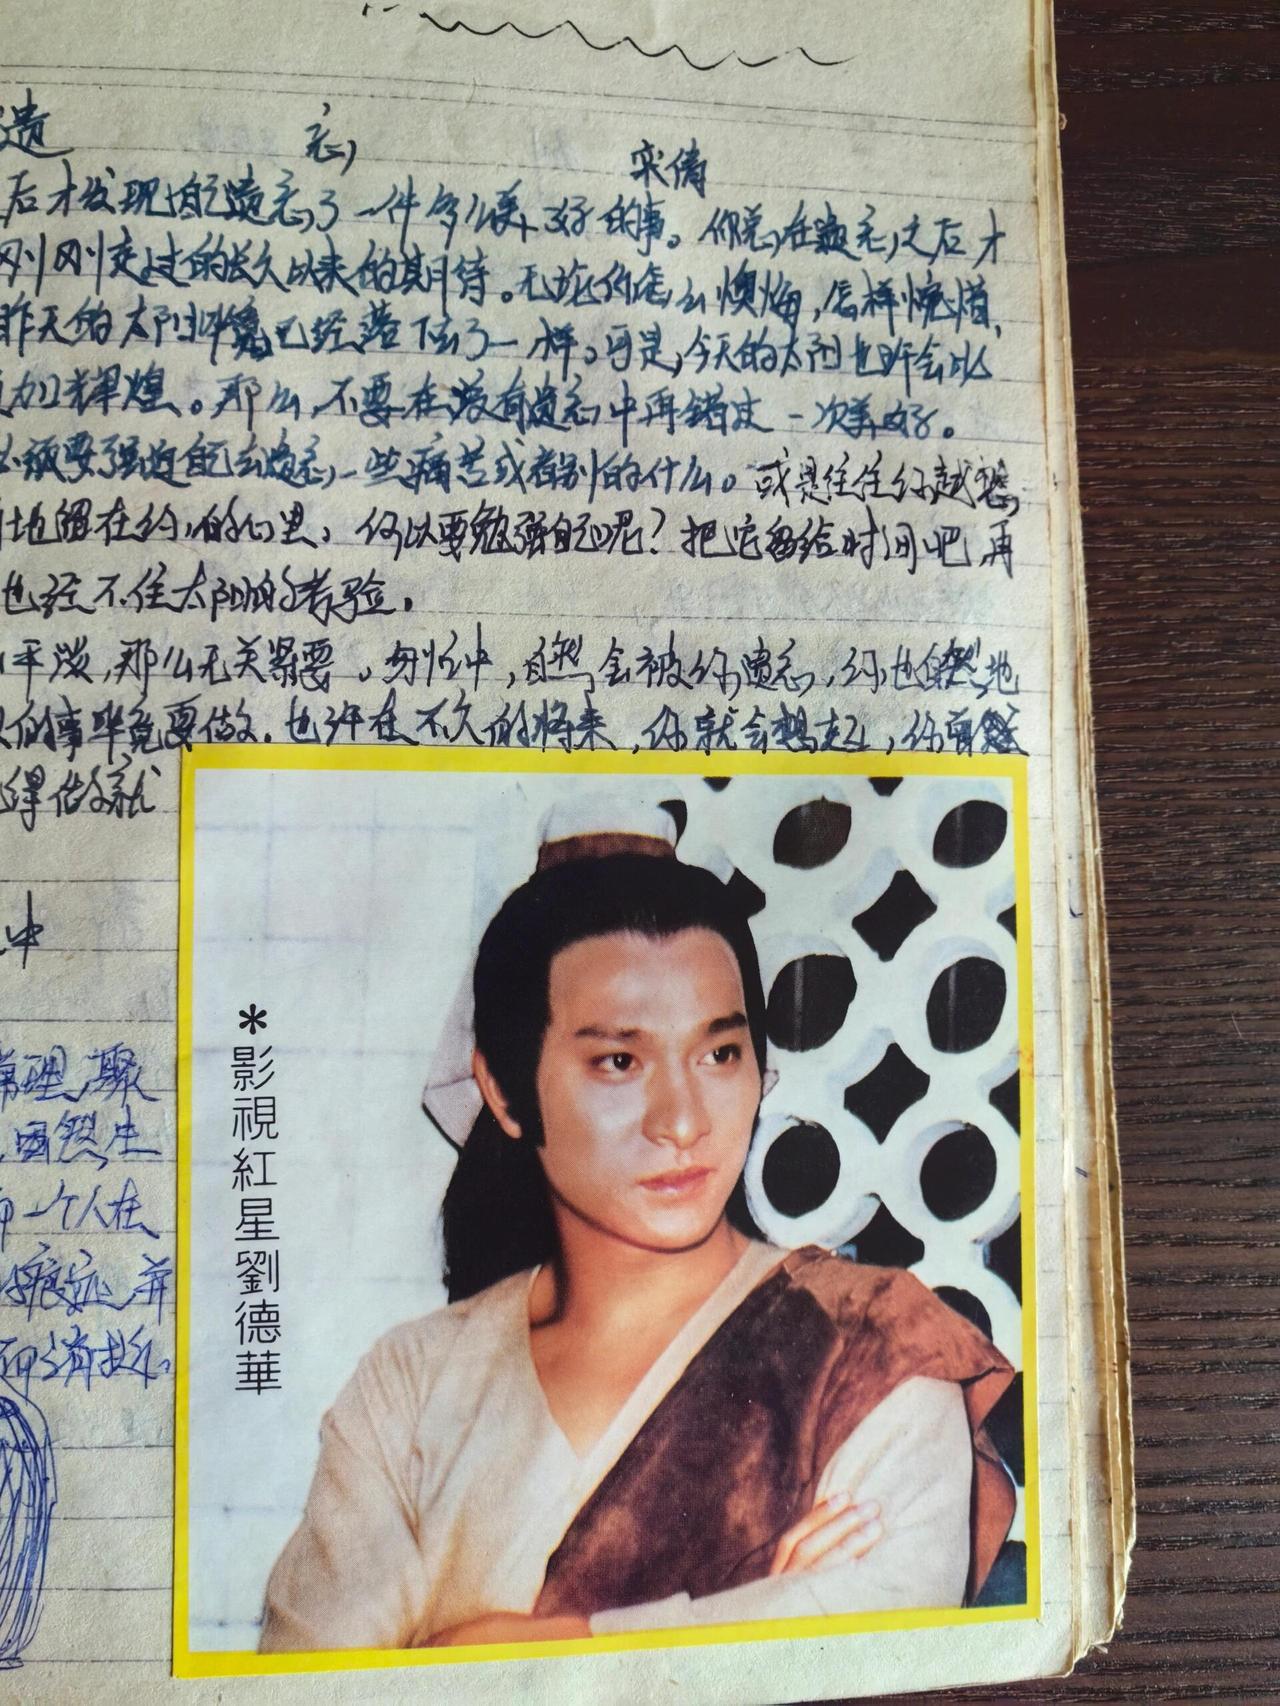 遗 忘
宋倩
后才发现自己遗忘了一件多么美好的事。你总在遗忘之后才
刚刚交过的长久以来的期待。无论你怎么懊悔,怎样惋惜,
昨天的太阳毕竟已经落下去了一样。可是,今天的太阳也许会比
加辉煌。那么,不要在没有遗忘中再错过一次美好。
要强迫自己去遗忘一些痛苦或者别的什么。或是往往你越想
地留在你的心里,何以要勉强自己呢?把它留给时间吧,再
也经不住太阳的考验。
平淡,那么无关紧要。匆忙中,自然会被你遗忘,你也自然地
的事毕竟要做。也许在不久的将来,你就会想起,你曾经
得做就
中
常理,聚
固然生
一个人在
痕迹并
而消逝。
*影視紅星劉德華